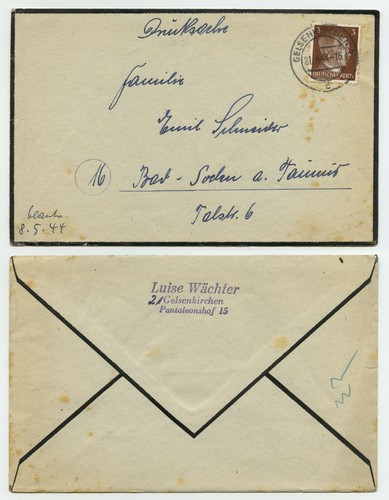 Drucksache
3 3
DEUTSCHES REICH
GELSENKIRCHEN
Familie
Emil Schneider
16 Bad-Soden a. Taunus
Talstr. 6
beantw.
8.5.44
Luise Wächter
21 Gelsenkirchen
Pantaleonshof 15
22